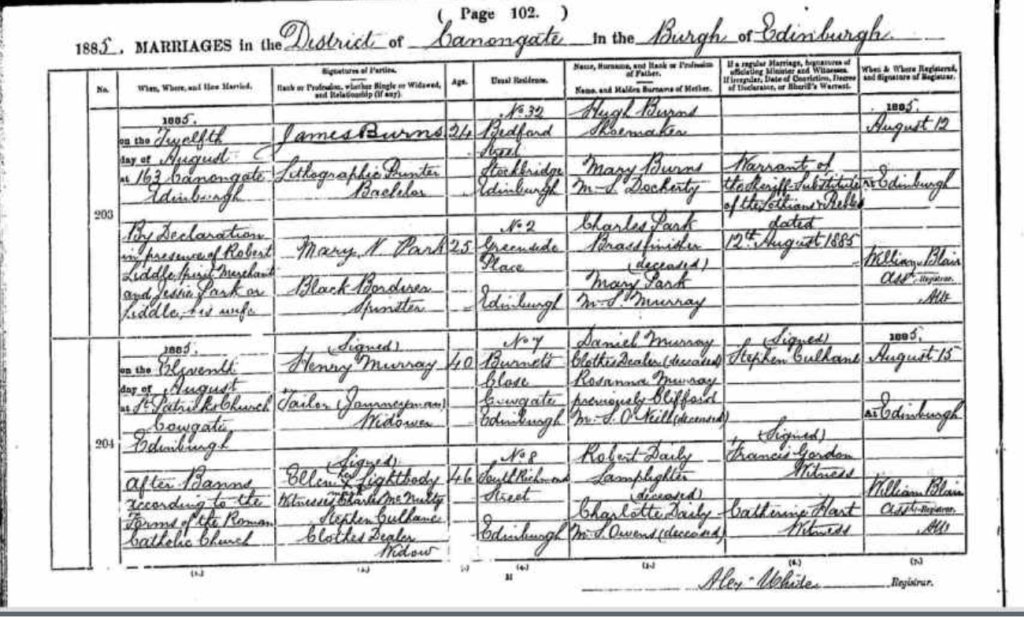 ( Page 102. )
1885. MARRIAGES in the District of Canongate in the Burgh of Edinburgh
No.
When, Where, and How Married.
Signatures of Parties.
Rank or Profession, whether Single or Widowed, and Relationship (if any).
Age.
Usual Residence.
Name, Surname, and Rank or Profession of Father.
Name, and Maiden Surname of Mother.
If a regular Marriage, Signatures of officiating Minister and Witnesses.
If irregular, Date of Conviction, Decree of Declarator, or Sheriff's Warrant.
When & Where Registered, and Signature of Registrar.
203
1885.
on the Twelfth
day of August
at 163 Canongate
Edinburgh
By Declaration
in presence of Robert
Liddle, Spirit Merchant
and Jessie Park or
Liddle, his wife
James Burns
Lithographic Printer
Bachelor
24
No. 32
Bedford
Street
Stockbridge
Edinburgh
Hugh Burns
Shoemaker
Mary Burns
M.S. Docherty
Mary N. Park
Black Borderer
Spinster
25
No 2
Greenside
Place
Edinburgh
Charles Park
Brassfinisher
(deceased)
Mary Park
M.S. Murray
Warrant of
the Sheriff-Substitute
of the Lothians & Peebles
dated
12th August 1885
1885.
August 12
At Edinburgh
William Blair
Asst. Registrar.
AW
204
1885.
on the Eleventh
day of August
at St. Patrick's Church
Cowgate
Edinburgh
After Banns
according to the
Forms of the Roman
Catholic Church
(Signed)
Henry Murray
Tailor (Journeyman)
Widower
40
No 7
Burnet's
Close
Cowgate
Edinburgh
Daniel Murray
Clothes Dealer (deceased)
Rosanna Murray
previously Clifford
M.S. O'Neill (deceased)
(Signed)
Ellen Lightbody
Witnesses Charles McNulty
Stephen Culhane
Clothes Dealer
Widow
46
No 8
South Richmond
Street
Edinburgh
Robert Daily
Lamplighter
(deceased)
Charlotte Daily
M.S. Owens (deceased)
(Signed)
Stephen Culhane
(Signed)
Francis Gordon
Witness
Catherine Hart
Witness
1885.
August 15
At Edinburgh
William Blair
Asst. Registrar.
AW
(1.) (2.) (3.) (4.) (5.) (6.) (7.)
H
Alex. White Registrar.